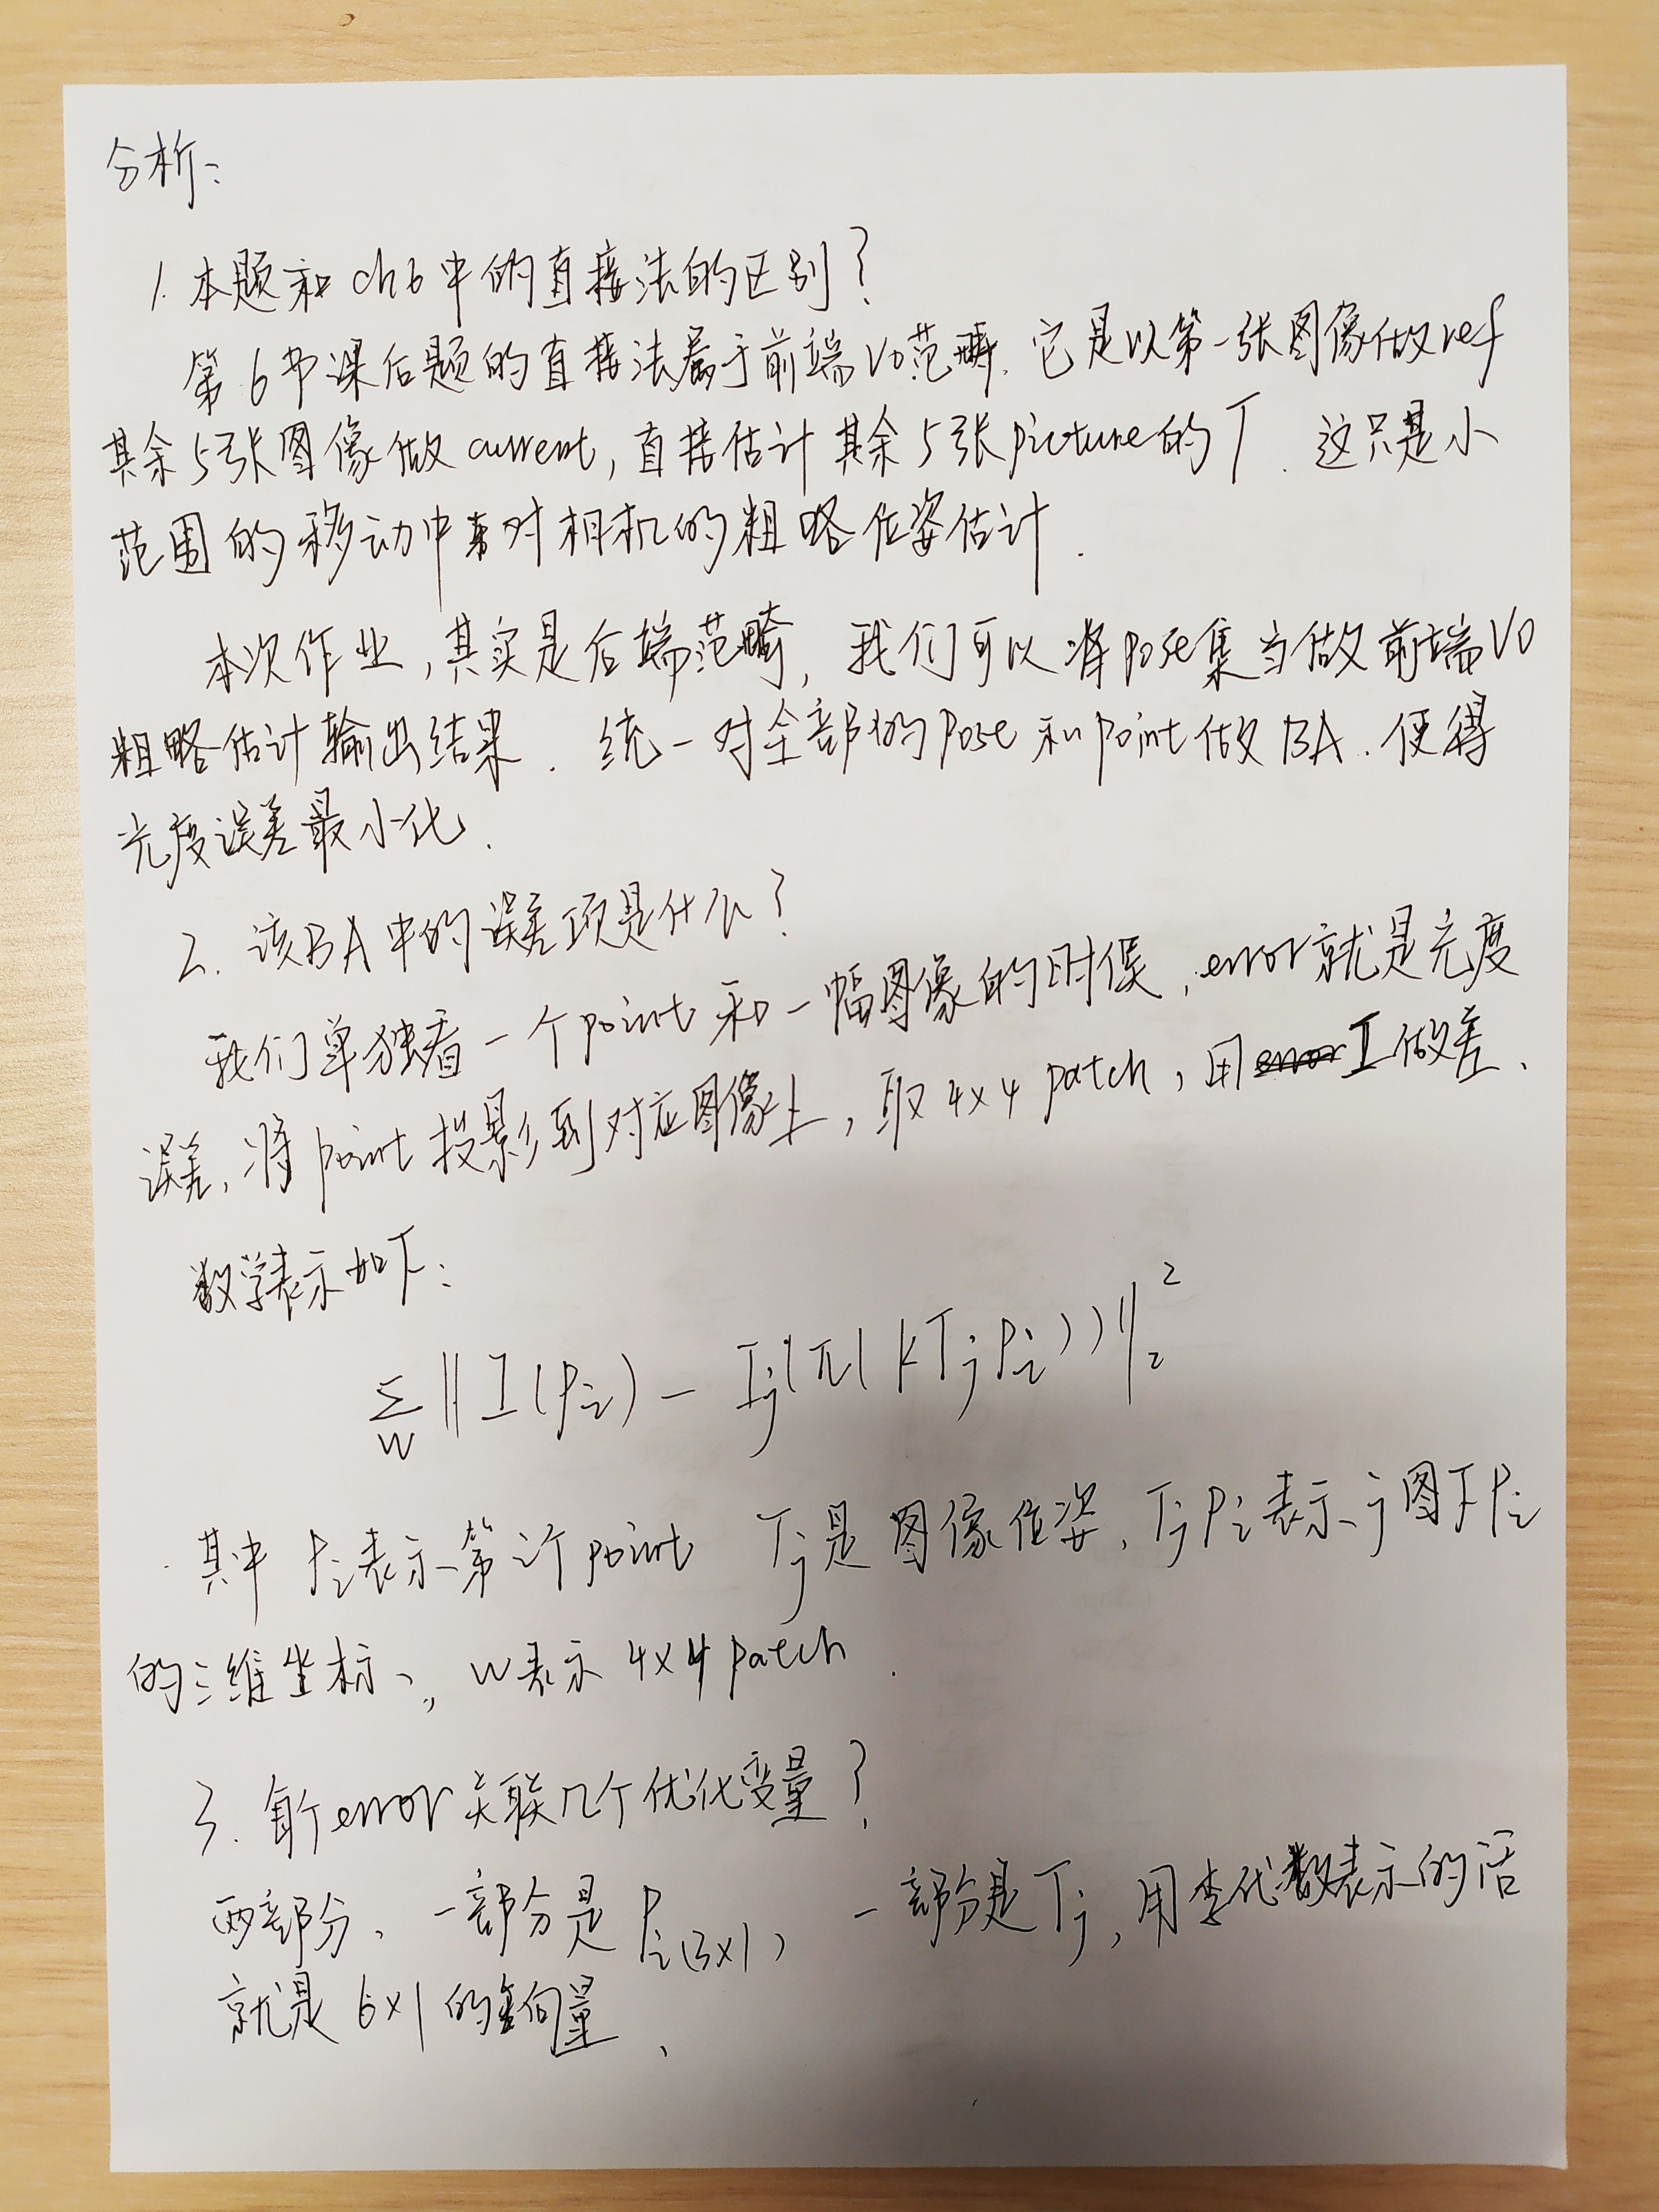 分析：
1. 本题和ch6中的直接法的区别？
第6中课后题的直接法属于前端VO范畴，它是以第一张图像做ref
其余5张图像做current，直接估计其余5张picture的T．这只是小
范围的移动中来对相机的粗略位姿估计．
本次作业，其实是后端范畴，我们可以将pose集当做前端VO
粗略估计输出结果．统一对全部的pose和point做BA．使得
光度误差最小化．
2. 该BA中的误差项是什么？
我们单独看一个point和一幅图像的时候，error就是光度
误差，将point投影到对应图像上，取4x4 patch，用I做差、
数学表示如下：
∑_W ||I(Pi) - Ij(π(KTjPi))||₂²
其中Pi表示第i个point Tj是图像位姿．TjPi表示j图下Pi
的三维坐标，W表示4x4 patch．
3. 每个error关联几个优化变量？
两部分、一部分是Pi(3x1) 一部分是Tj，用李代数表示的话
就是6x1的向量、